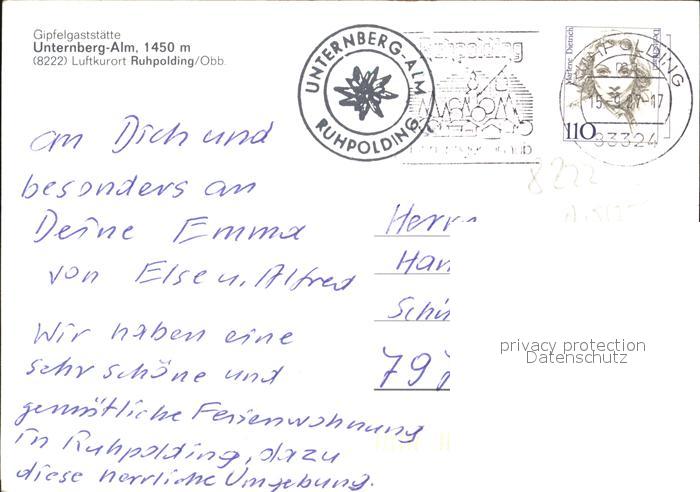 Gipfelgaststätte
Unternberg-Alm, 1450 m
(8222) Luftkurort Ruhpolding/Obb.
UNTERNBERG-ALM
RUHPOLDING
Ruhpolding
Marlene Dietrich
110
RUHPOLDING
83324
8222
an Dich und
besonders an
Deine Emma
von Else u. Alfred
Wir haben eine
sehr schöne und
gemütliche Ferienwohnung
in Ruhpolding, dazu
diese herrliche Umgebung.
Herr
Han
Sch
79
privacy protection
Datenschutz